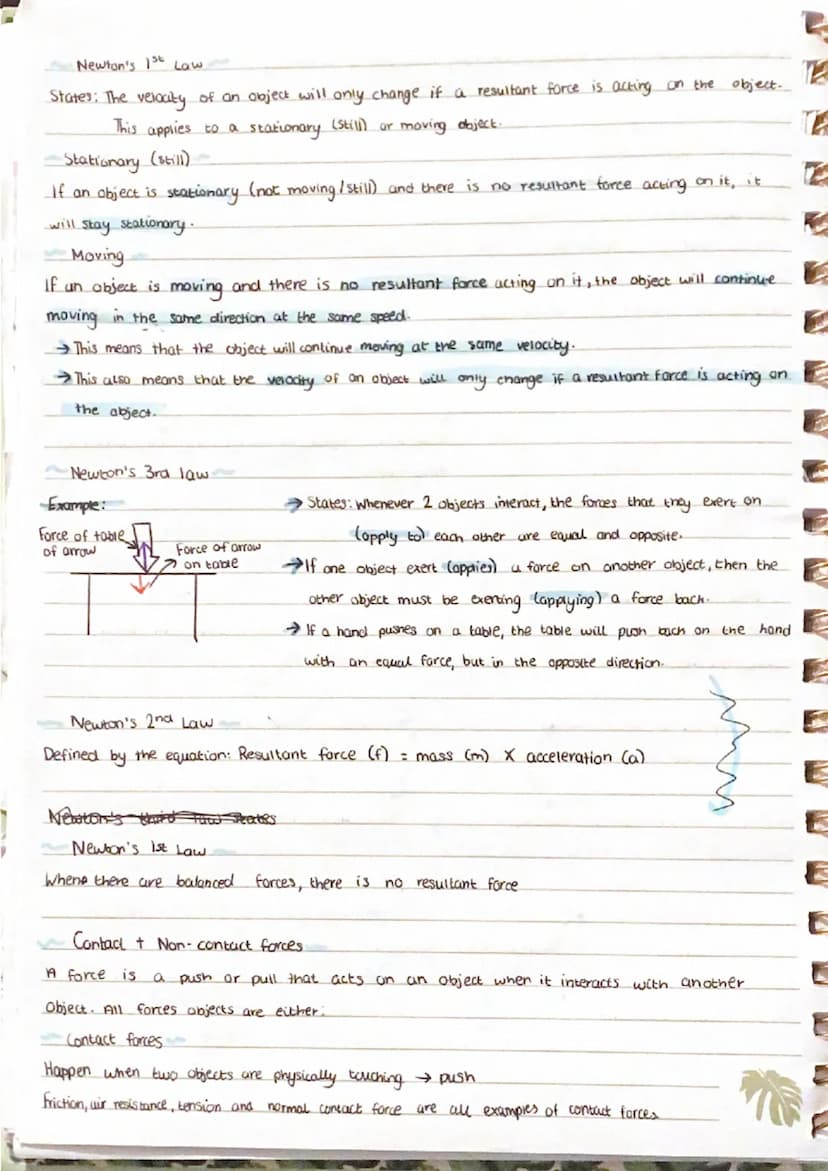 Newton's 1st Law
States: The velocity of an object will only change if a resultant force is acting on the object.
This applies to a stationary (still) or moving object.
Stationary (still)
If an object is stationary (not moving/still) and there is no resultant force acting on it, it
will stay stationary.
Moving
If an object is moving and there is no resultant force acting on it, the object will continue
moving in the same direction at the same speed.
→ This means that the object will continue moving at the same velocity.
→ This also means that the velocity of an object will only change if a resultant force is acting on
the object.
Newton's 3rd law
Example:
Force of table
of arrow
Force of arrow
on table
→ States: Whenever 2 objects interact, the forces that they exert on
(apply to) each other are equal and opposite.
→ If one object exert (appies) a force on another object, then the
other object must be exerting (applying) a force back.
→ If a hand pushes on a table, the table will push back on the hand
with an equal force, but in the opposite direction.
Newton's 2nd Law
Defined by the equation: Resultant force (f) = mass (m) X acceleration (a)
Newton's third law states
Newton's 1st Law
When there are balanced forces, there is no resultant force
Contact + Non-contact forces
A force is a push or pull that acts on an object when it interacts with another
object. All forces objects are either:
Contact forces
Happen when two objects are physically touching → push
Friction, air resistance, tension and normal contact force are all examples of contact forces